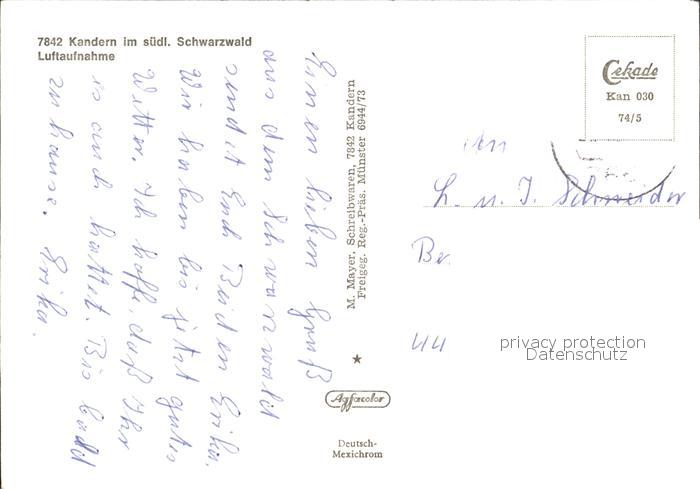 7842 Kandern im südl. Schwarzwald
Luftaufnahme
Einen lieben Gruß
aus dem Schwarzwald
sendet Euch Beiden Erika.
Wir haben bis jetzt gutes
Wetter. Ich hoffe, daß Ihr
es auch hattet. Bis bald
zu hause. Erika.
M. Mayer, Schreibwaren, 7842 Kandern
Freigeg. Reg.-Präs. Münster 6944/73
Agfacolor
Deutsch-
Mexichrom
Cekade
Kan 030
74/5
An
L. u. I. Schneider
Be.
44
privacy protection
Datenschutz